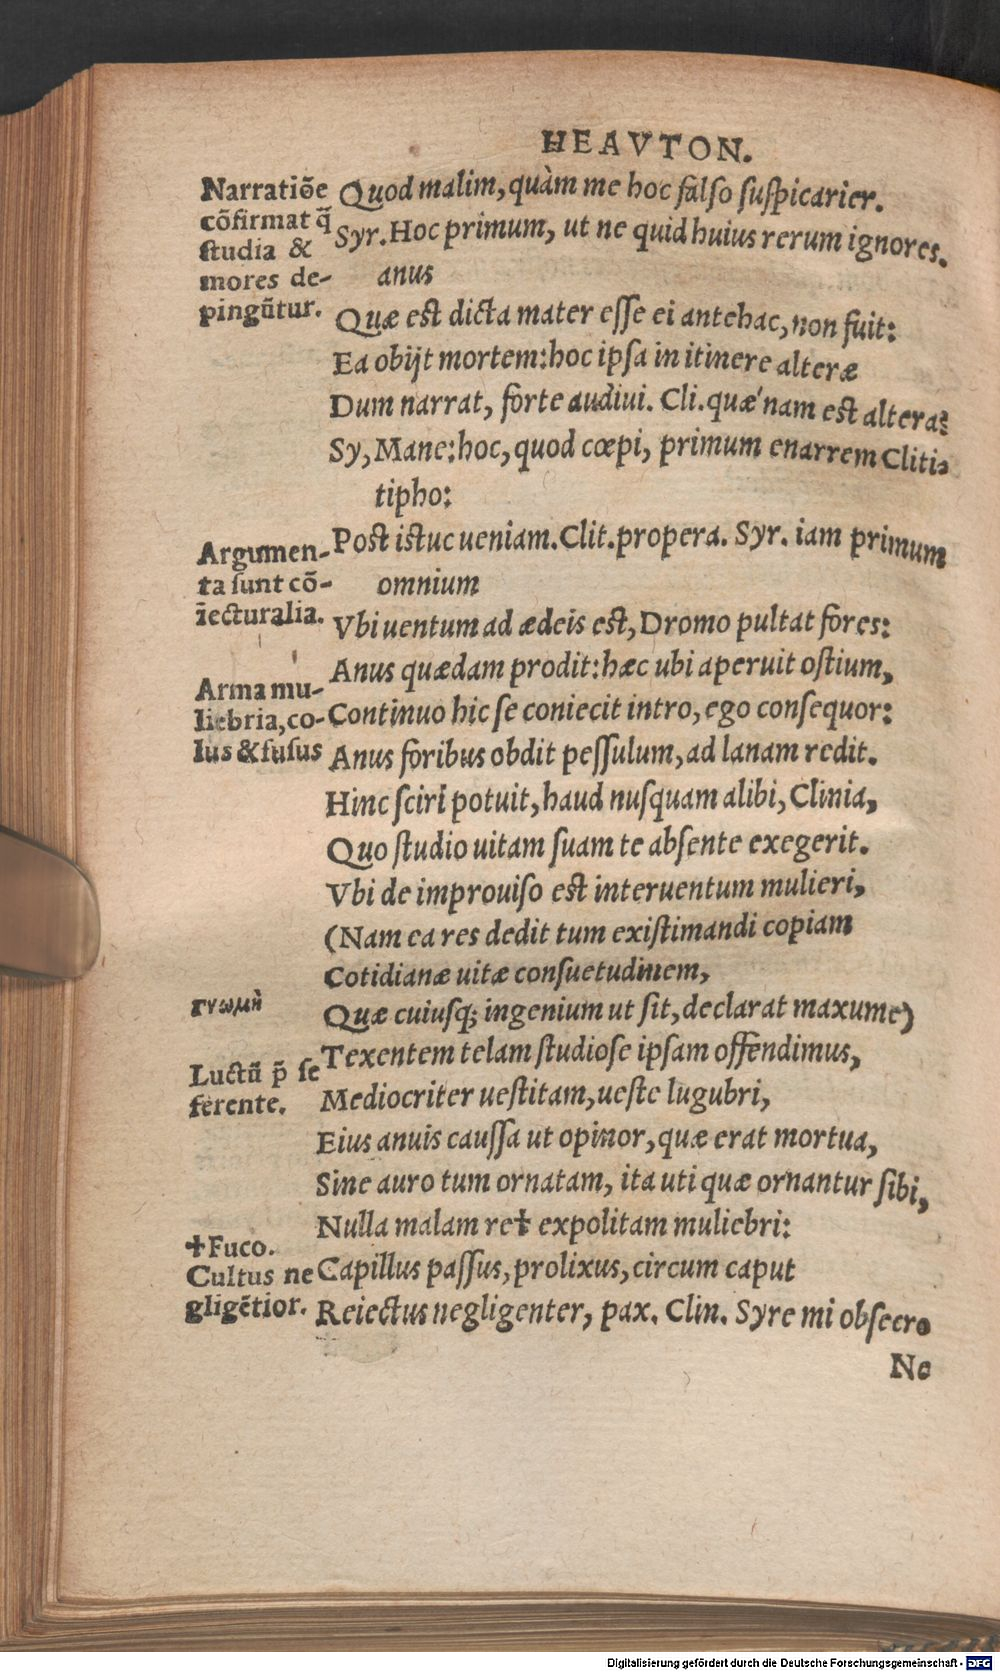 HEAVTON.
Narratiõe
cõfirmat q̃
studia &
mores de-
pingũtur.
Quod malim, quàm me hoc falso suspicarier.
Syr. Hoc primum, ut ne quid huius rerum ignores.
anus
Quæ est dicta mater esse ei antehac, non fuit:
Ea obijt mortem: hoc ipsa in itinere alteræ
Dum narrat, forte audiui. Cli. quæ nam est altera?
Sy, Mane: hoc, quod cœpi, primum enarrem Cliti-
tipho:
Post istuc ueniam. Clit. propera. Syr. iam primum
omnium
Argumen-
ta sunt cõ-
iecturalia.
Vbi uentum ad ædeis est, Dromo pultat fores:
Anus quædam prodit: hæc ubi aperuit ostium,
Arma mu-
liebria, co-
lus & fusus
Continuo hic se coniecit intro, ego consequor:
Anus foribus obdit pessulum, ad lanam redit.
Hinc sciri potuit, haud nusquam alibi, Clinia,
Quo studio uitam suam te absente exegerit.
Vbi de improuiso est interuentum mulieri,
(Nam ea res dedit tum existimandi copiam
Cotidianæ uitæ consuetudinem,
γνωμὴ
Quæ cuiusq; ingenium ut sit, declarat maxume)
Luctũ p̃ se
ferente.
Texentem telam studiose ipsam offendimus,
Mediocriter uestitam, ueste lugubri,
Eius anuis caussa ut opinor, quæ erat mortua,
Sine auro tum ornatam, ita uti quæ ornantur sibi,
Nulla malam re✝ expolitam muliebri:
✝Fuco.
Cultus ne
gligẽtior.
Capillus passus, prolixus, circum caput
Reiectus negligenter, pax. Clin. Syre mi obsecro
Ne
Digitalisierung gefördert durch die Deutsche Forschungsgemeinschaft - DFG